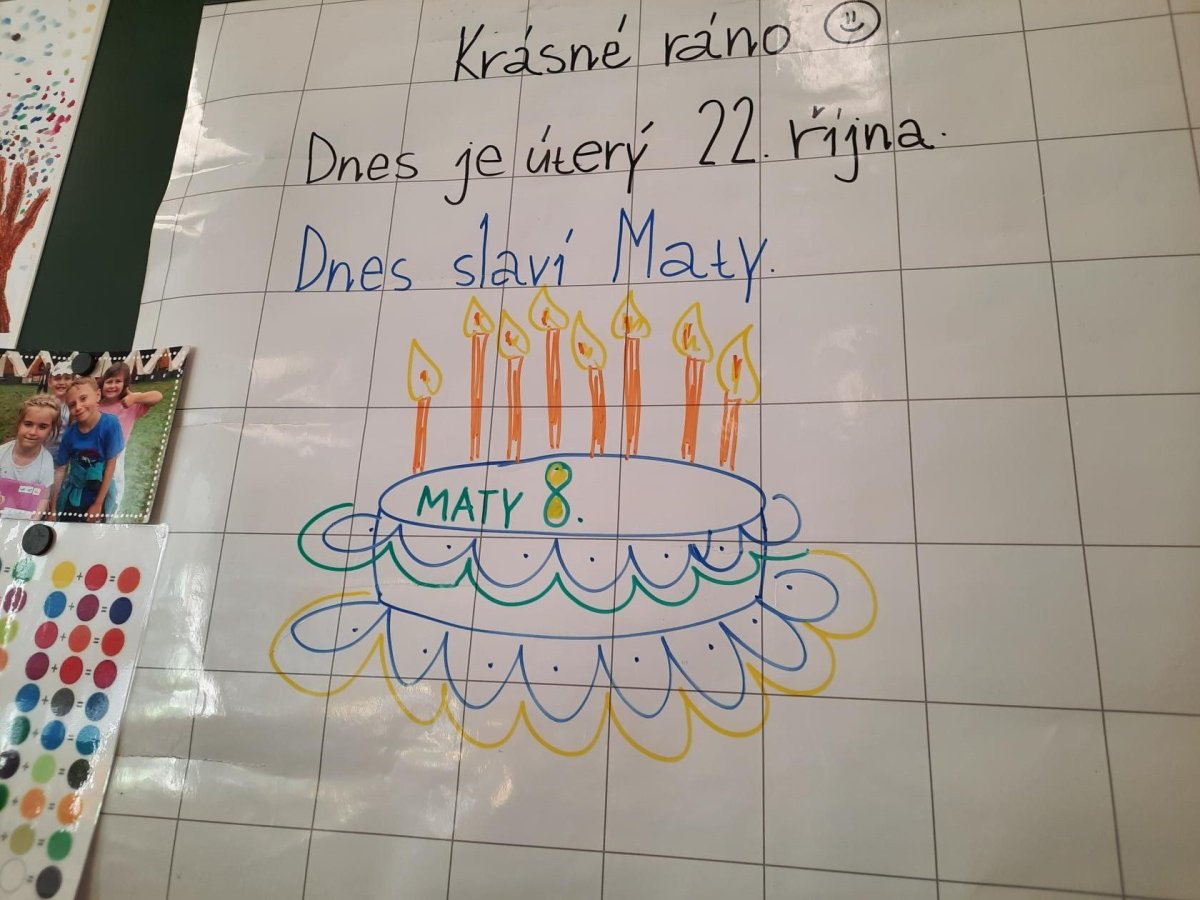 Krásné ráno
Dnes je úterý 22. října.
Dnes slaví Maty.
MATY 8.